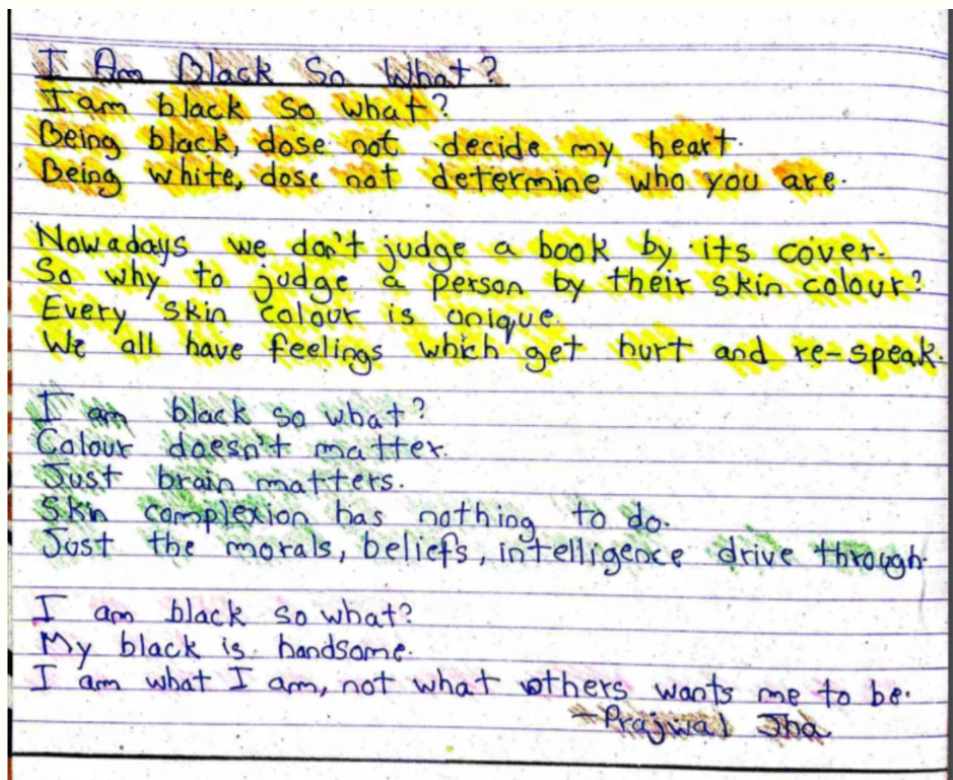 I Am Black So What?
I am black so what?
Being black, dose not decide my heart.
Being white, dose not determine who you are.
Now a days we don't judge a book by its cover.
So why to judge a person by their skin colour?
Every skin colour is unique.
We all have feelings which get hurt and re-speak.
I am black so what?
Colour doesn't matter.
Just brain matters.
Skin complexion has nothing to do.
Just the morals, beliefs, intelligence drive through.
I am black so what?
My black is handsome.
I am what I am, not what others wants me to be.
-Prajwal Jha